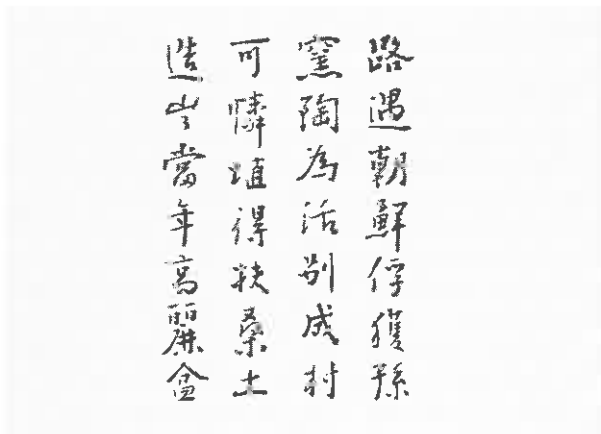 路遇朝鮮俘獲孫
窯陶為活別成村
可憐埴得扶桑土
造出當年高麗盆